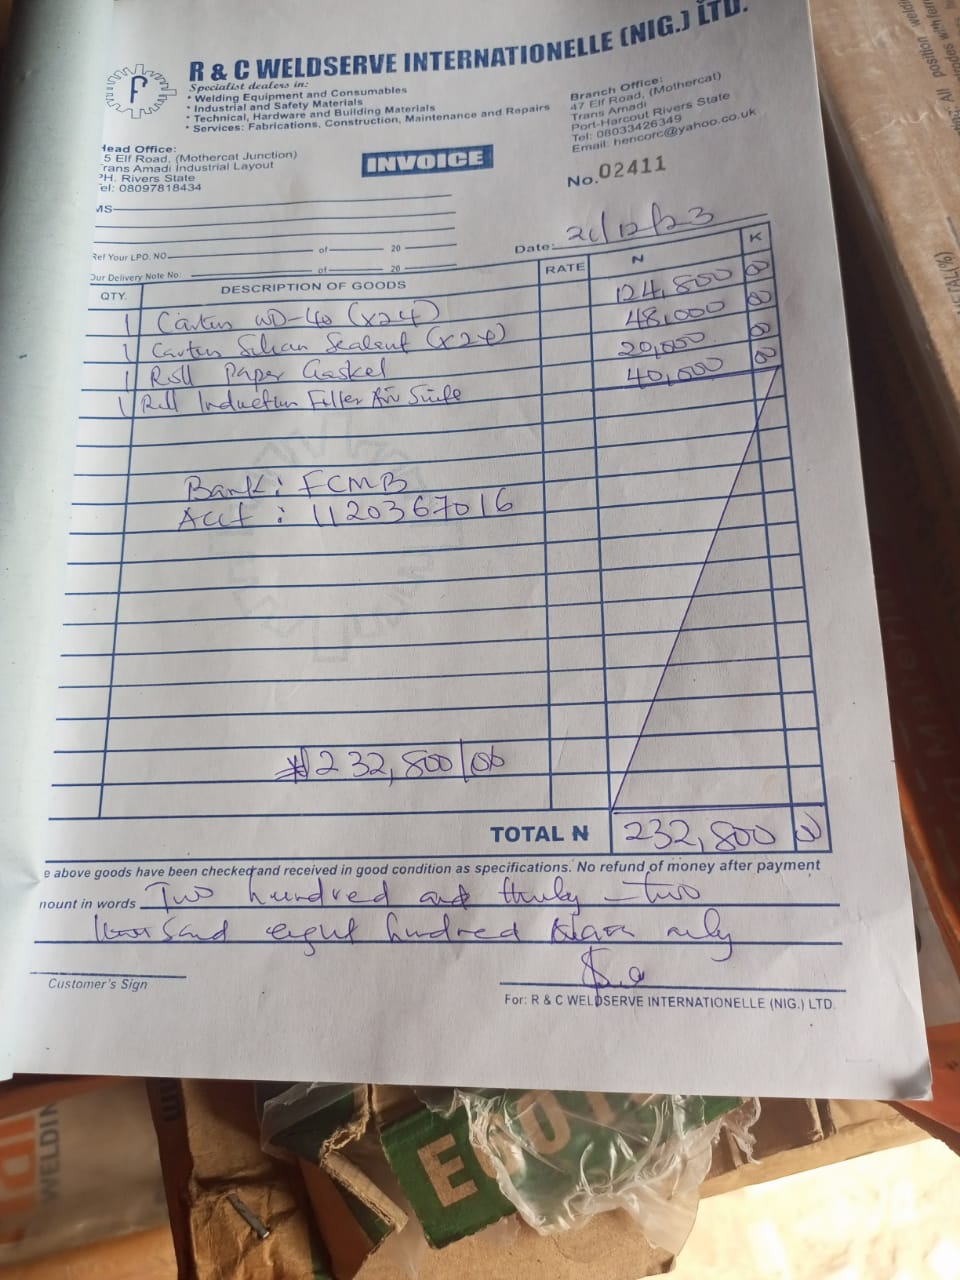 R & C WELDSERVE INTERNATIONELLE (NIG.) LTD.
Specialist dealers in:
• Welding Equipment and Consumables
• Industrial and Safety Materials
• Technical, Hardware and Building Materials
• Services: Fabrications, Construction, Maintenance and Repairs
Head Office:
5 Elf Road, (Mothercat Junction)
Trans Amadi Industrial Layout
PH. Rivers State
Tel: 08097818434
Branch Office:
47 Elf Road, (Mothercat)
Trans Amadi
Port-Harcourt Rivers State
Tel: 08033426349
Email: hencorc@yahoo.co.uk
INVOICE
No. 02411
MS
Date: 21/12/23
Ref Your LPO. NO of 20
Our Delivery Note No: of 20
QTY. DESCRIPTION OF GOODS RATE N K
1 Carten WD-40 (x24) 124,800 00
1 Carten Silican Sealant (x24) 48,000 00
1 Roll Paper Gasket 20,000 00
1 Roll Induction Filter Air 40,000 00
Bank: FCMB
Acct : 1120367016
₦232,800/00
TOTAL N 232,800 00
e above goods have been checked and received in good condition as specifications. No refund of money after payment
nount in words Two hundred and thirty-two
thousand eight hundred Naira only
Customer's Sign
For: R & C WELDSERVE INTERNATIONELLE (NIG.) LTD.
WELDIN